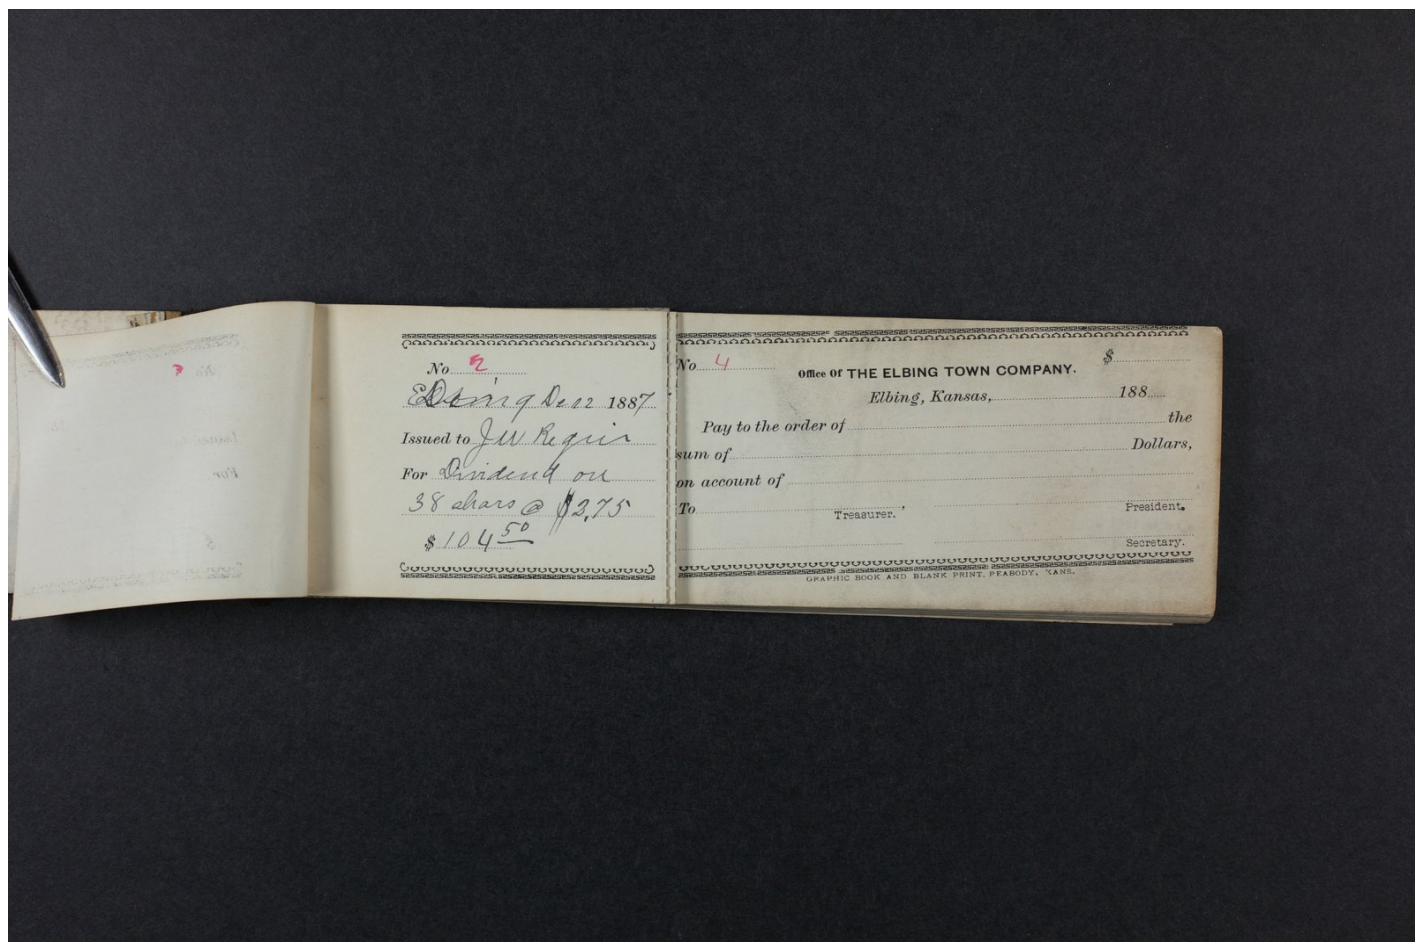 No 2
Elbing Dec 12 1887
Issued to J W Regier
For Dividend on
38 shars @ $2,75
$ 104 50
No 4
$
Office Of THE ELBING TOWN COMPANY.
Elbing, Kansas, 188
Pay to the order of the
sum of Dollars,
on account of
To Treasurer. President.
Secretary.
GRAPHIC BOOK AND BLANK PRINT, PEABODY, KANS.